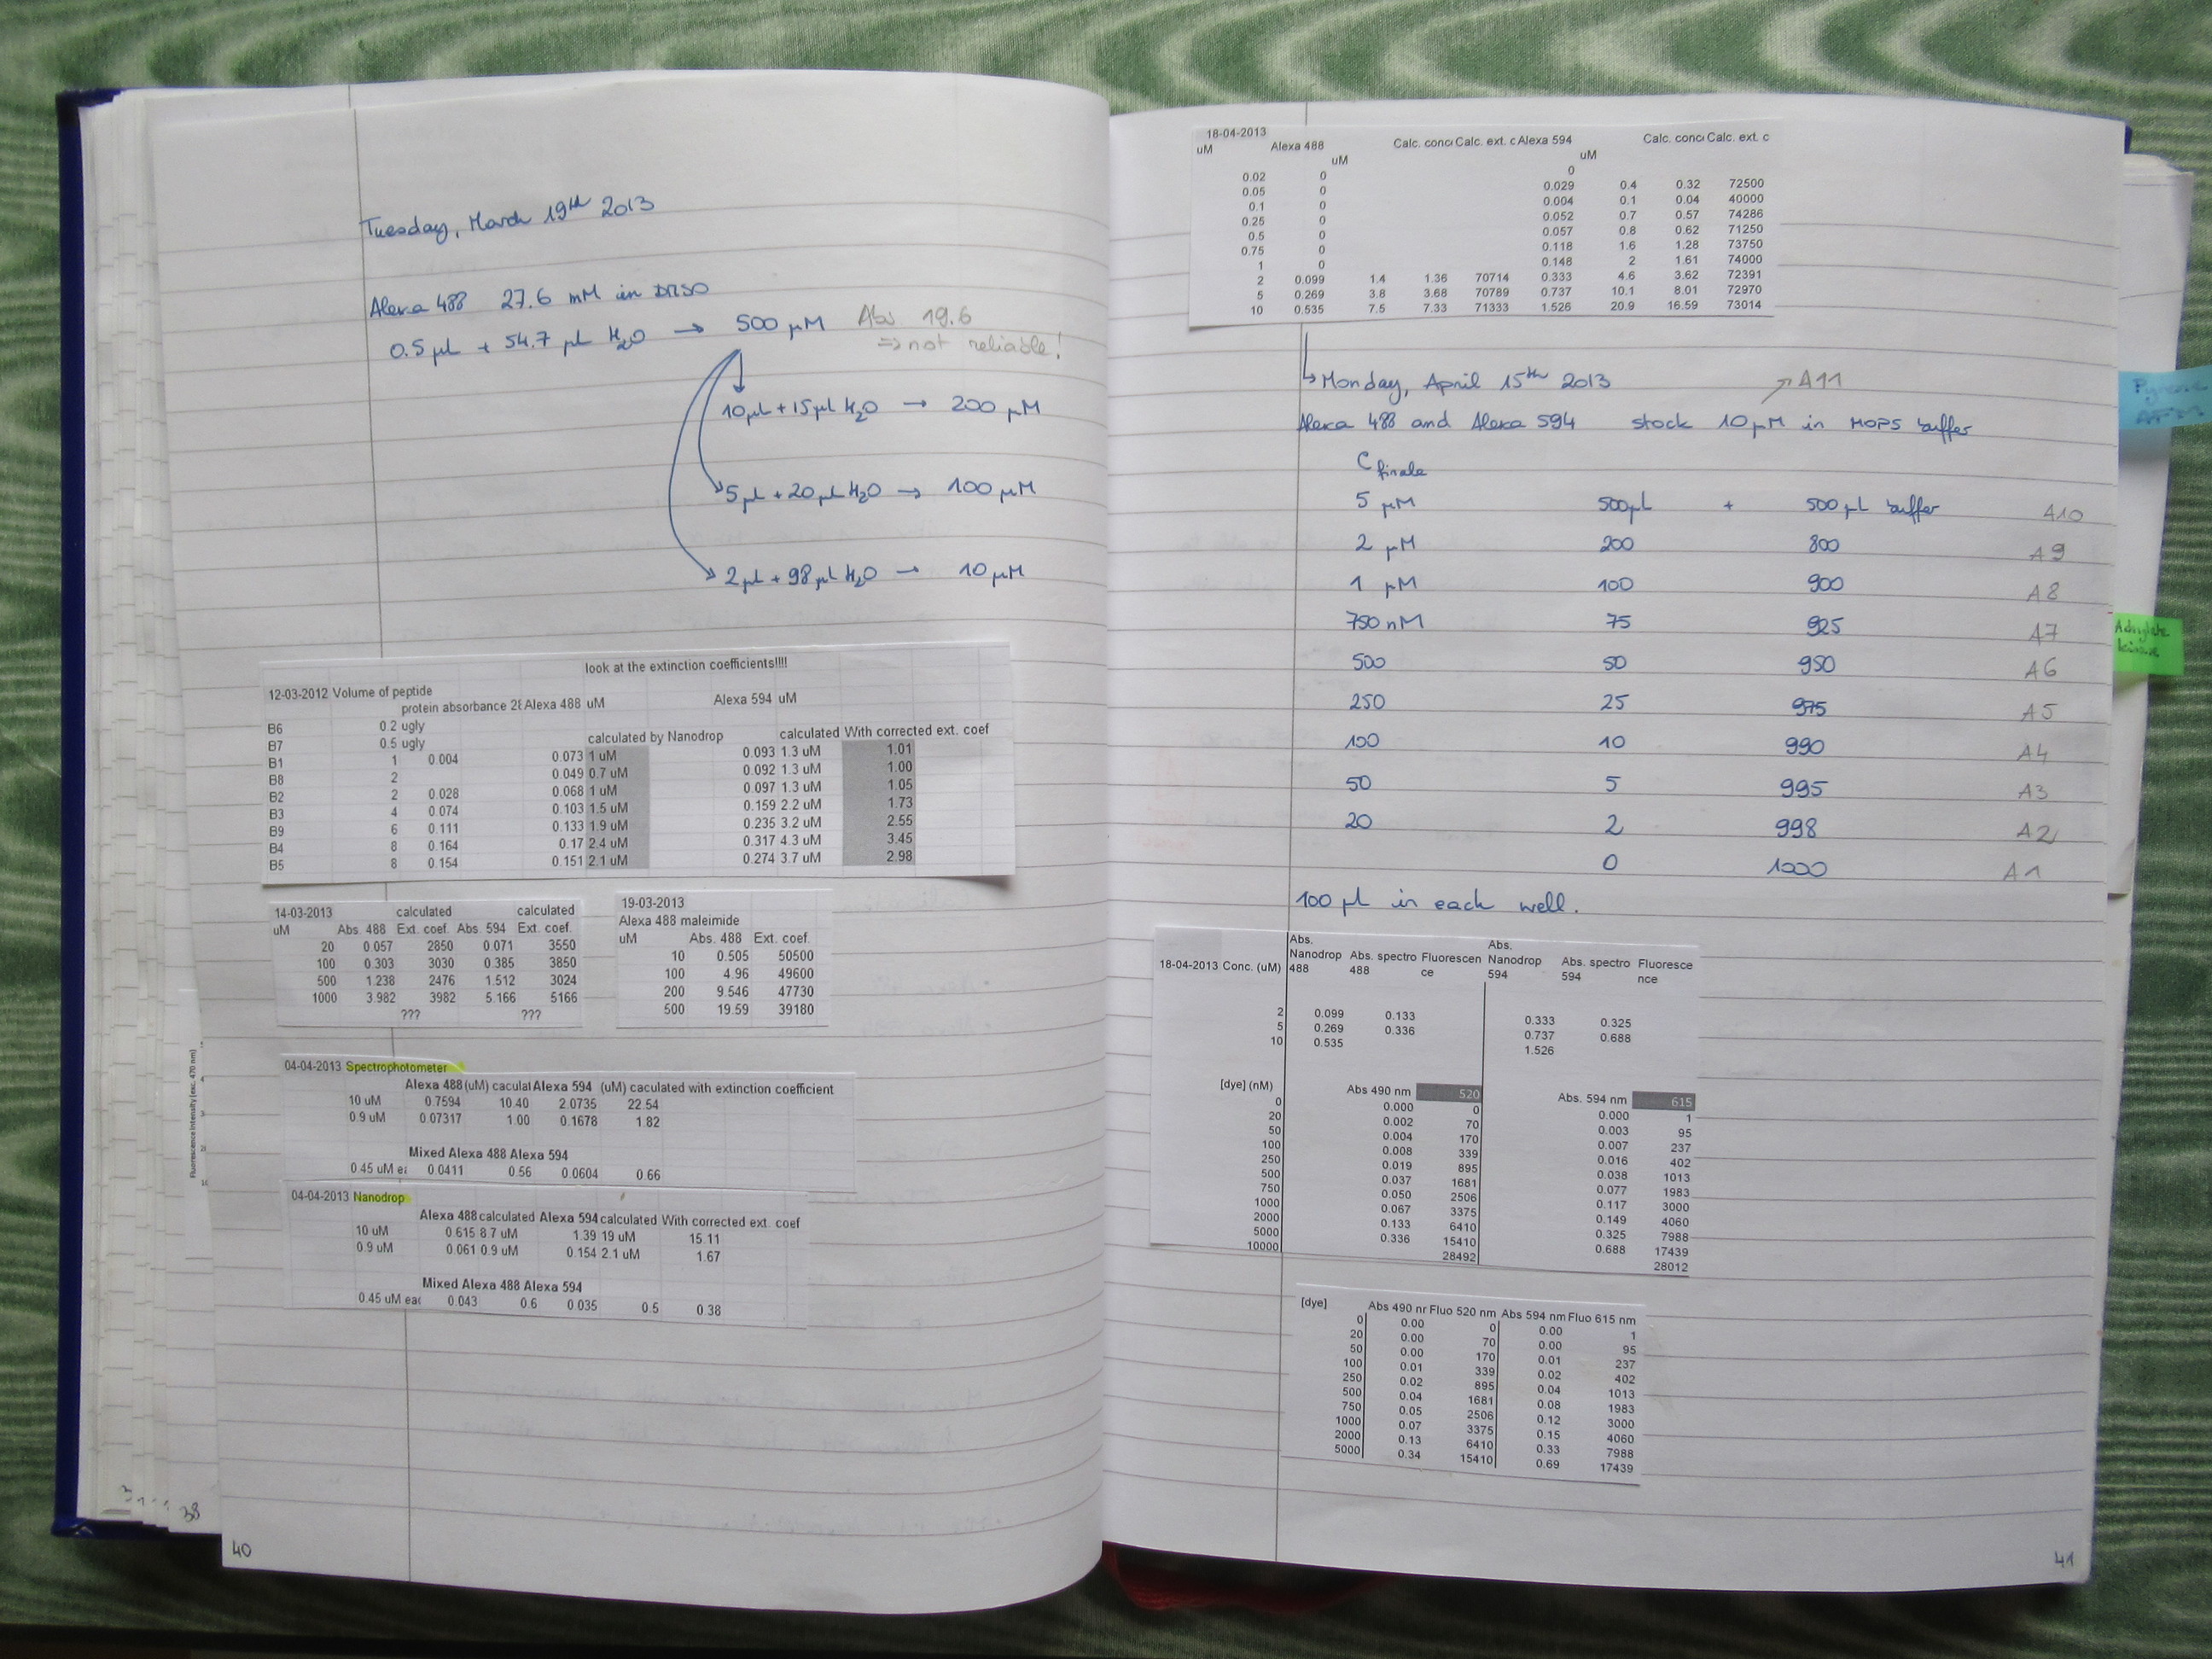 Tuesday, March 19th 2013
Alexa 488 27.6 mM in DMSO
0.5 µL + 54.7 µL H2O → 500 µM Abs 19.6
⇒ not reliable!
10 µL + 15 µL H2O → 200 µM
5 µL + 20 µL H2O → 100 µM
2 µL + 98 µL H2O → 10 µM
look at the extinction coefficients!!!!
12-03-2012 Volume of peptide
protein absorbance 28 Alexa 488 uM Alexa 594 uM
B6 0.2 ugly
B7 0.5 ugly calculated by Nanodrop calculated With corrected ext. coef
B1 1 0.004 0.073 1 uM 0.093 1.3 uM 1.01
B8 2 0.049 0.7 uM 0.092 1.3 uM 1.00
B2 2 0.028 0.068 1 uM 0.097 1.3 uM 1.05
B3 4 0.074 0.103 1.5 uM 0.159 2.2 uM 1.73
B9 6 0.111 0.133 1.9 uM 0.235 3.2 uM 2.55
B4 8 0.164 0.17 2.4 uM 0.317 4.3 uM 3.45
B5 8 0.154 0.151 2.1 uM 0.274 3.7 uM 2.98
14-03-2013 calculated calculated
uM Abs. 488 Ext. coef. Abs. 594 Ext. coef.
20 0.057 2850 0.071 3550
100 0.303 3030 0.385 3850
500 1.238 2476 1.512 3024
1000 3.982 3982 5.166 5166
??? ???
19-03-2013
Alexa 488 maleimide
uM Abs. 488 Ext. coef.
10 0.505 50500
100 4.96 49600
200 9.546 47730
500 19.59 39180
Fluorescence intensity (exc. 470 nm)
04-04-2013 Spectrophotometer
Alexa 488 (uM) caculat Alexa 594 (uM) caculated with extinction coefficient
10 uM 0.7594 10.40 2.0735 22.54
0.9 uM 0.07317 1.00 0.1678 1.82
Mixed Alexa 488 Alexa 594
0.45 uM ea 0.0411 0.56 0.0604 0.66
04-04-2013 Nanodrop
Alexa 488 calculated Alexa 594 calculated With corrected ext. coef
10 uM 0.615 8.7 uM 1.39 19 uM 15.11
0.9 uM 0.061 0.9 uM 0.154 2.1 uM 1.67
Mixed Alexa 488 Alexa 594
0.45 uM eac 0.043 0.6 0.035 0.5 0.38
38
40
18-04-2013
uM Alexa 488 uM Calc. conc Calc. ext. c Alexa 594 uM Calc. conc Calc. ext. c
0
0.02 0 0.029 0.4 0.32 72500
0.05 0 0.004 0.1 0.04 40000
0.1 0 0.052 0.7 0.57 74286
0.25 0 0.057 0.8 0.62 71250
0.5 0 0.118 1.6 1.28 73750
0.75 0 0.148 2 1.61 74000
1 0
2 0.099 1.4 1.36 70714 0.333 4.6 3.62 72391
5 0.269 3.8 3.68 70789 0.737 10.1 8.01 72970
10 0.535 7.5 7.33 71333 1.526 20.9 16.59 73014
↳ Monday, April 15th 2013 ↗ A11
Alexa 488 and Alexa 594 stock 10 µM in MOPS buffer
C finale
5 µM 500 µL + 500 µL buffer A10
2 µM 200 800 A9
1 µM 100 900 A8
750 nM 75 925 A7
500 50 950 A6
250 25 975 A5
100 10 990 A4
50 5 995 A3
20 2 998 A2
0 1000 A1
100 µL in each well.
18-04-2013 Conc. (uM) Abs. Nanodrop 488 Abs. spectro 488 Fluorescen ce Abs. Nanodrop 594 Abs. spectro 594 Fluoresce nce
2 0.099 0.133 0.333 0.325
5 0.269 0.336 0.737 0.688
10 0.535 1.526
[dye] (nM) Abs 490 nm 520 Abs. 594 nm 615
0 0.000 0 0.000 1
20 0.002 70 0.003 95
50 0.004 170 0.007 237
100 0.008 339 0.016 402
250 0.019 895 0.038 1013
500 0.037 1681 0.077 1983
750 0.050 2506 0.117 3000
1000 0.067 3375 0.149 4060
2000 0.133 6410 0.325 7988
5000 0.336 15410 0.688 17439
10000 28492 28012
[dye] Abs 490 nr Fluo 520 nm Abs 594 nm Fluo 615 nm
0 0.00 0 0.00 1
20 0.00 70 0.00 95
50 0.00 170 0.01 237
100 0.01 339 0.02 402
250 0.02 895 0.04 1013
500 0.04 1681 0.08 1983
750 0.05 2506 0.12 3000
1000 0.07 3375 0.15 4060
2000 0.13 6410 0.33 7988
5000 0.34 15410 0.69 17439
AFM
Adenylate
kinase
41